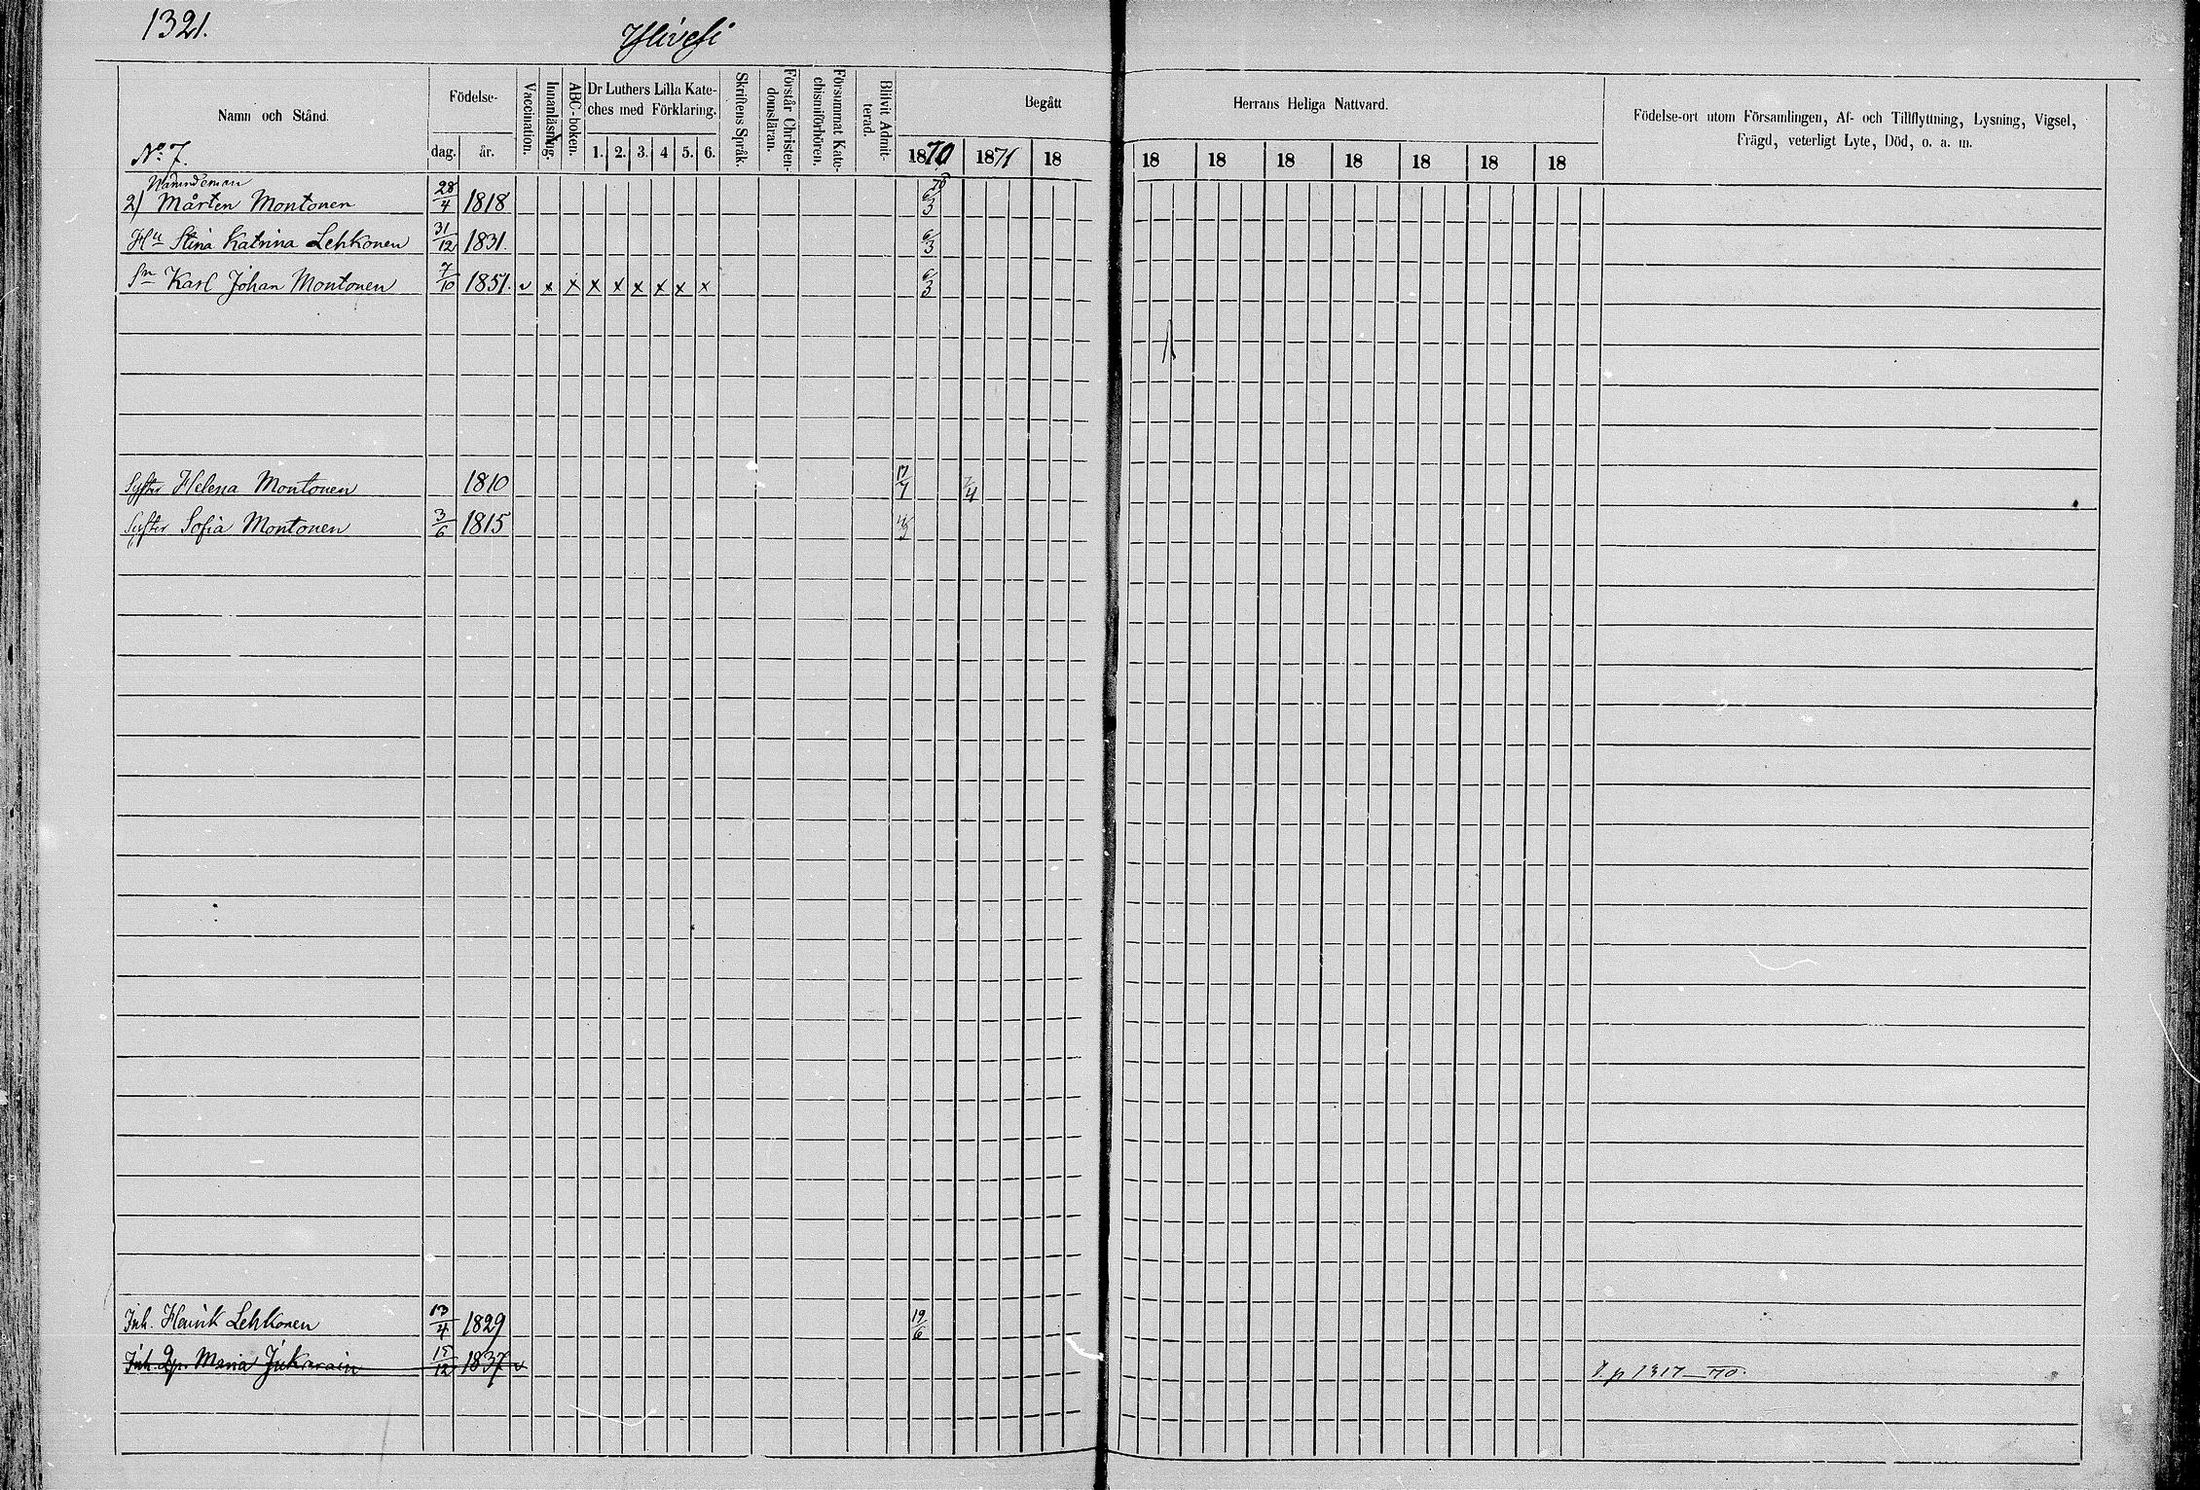 1321.
Ylivesi
Namn och Stånd.
Födelse-
dag. år.
Vaccination.
Innanläsning.
ABC-boken.
Dr Luthers Lilla Kate-
ches med Förklaring.
1. 2. 3. 4 5. 6.
Skriftens Språk.
Förstår Christen-
domsläran.
Försummat Kate-
chismiförhören.
Blifvit Admit-
terad.
Begått
Herrans Heliga Nattvard.
1870 1871 18 18 18 18 18 18 18 18
Födelse-ort utom Församlingen, Af- och Tillflyttning, Lysning, Vigsel,
Frägd, veterligt Lyte, Död, o. a. m.
No 7.
Nämndeman
2) Mårten Montonen 28/4 1818 6/3
Hu Stina Katrina Lehkonen 31/12 1831. 6/3
Sn Karl Johan Montonen 7/10 1851. v x x x x x x x x 6/3
Syster Helena Montonen 1810 17/7 7/4
Syster Sofia Montonen 3/6 1815
Inh. Henrik Lehkonen 13/4 1829 19/6
Inh. Maria 15/12 1837 v p 1317 70.